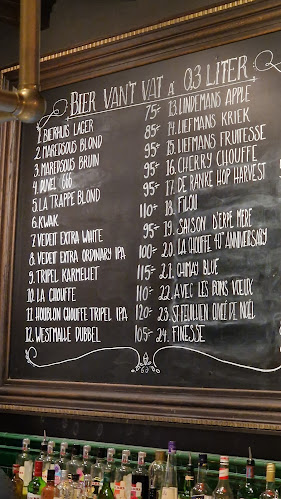 BIER VAN'T VAT á 0.3 LITER
1. BIERHUIS LAGER 75,-
2. MAREDSOUS BLOND 85,-
3. MAREDSOUS BRUIN 95,-
4. DUVEL 666 95,-
5. LA TRAPPE BLOND 95,-
6. KWAK 110,-
7. VEDETT EXTRA WHITE 95,-
8. VEDETT EXTRA ORDINARY IPA 100,-
9. TRIPEL KARMELIET 115,-
10. LA CHOUFFE 110,-
11. HOUBLON CHOUFFE TRIPEL IPA 120,-
12. WESTMALLE DUBBEL 105,-
13. LINDEMANS APPLE
14. LIEFMANS KRIEK
15. LIEFMANS FRUITESSE
16. CHERRY CHOUFFE
17. DE RANKE HOP HARVEST
18. FILOU
19. SAISON D'EPE MERE
20. LA CHOUFFE 40TH ANNIVERSARY
21. CHIMAY BLUE
22. AVEC LES BONS VŒUX
23. ST FEUILLIEN CUVÉE DE NOËL
24. FINESSE